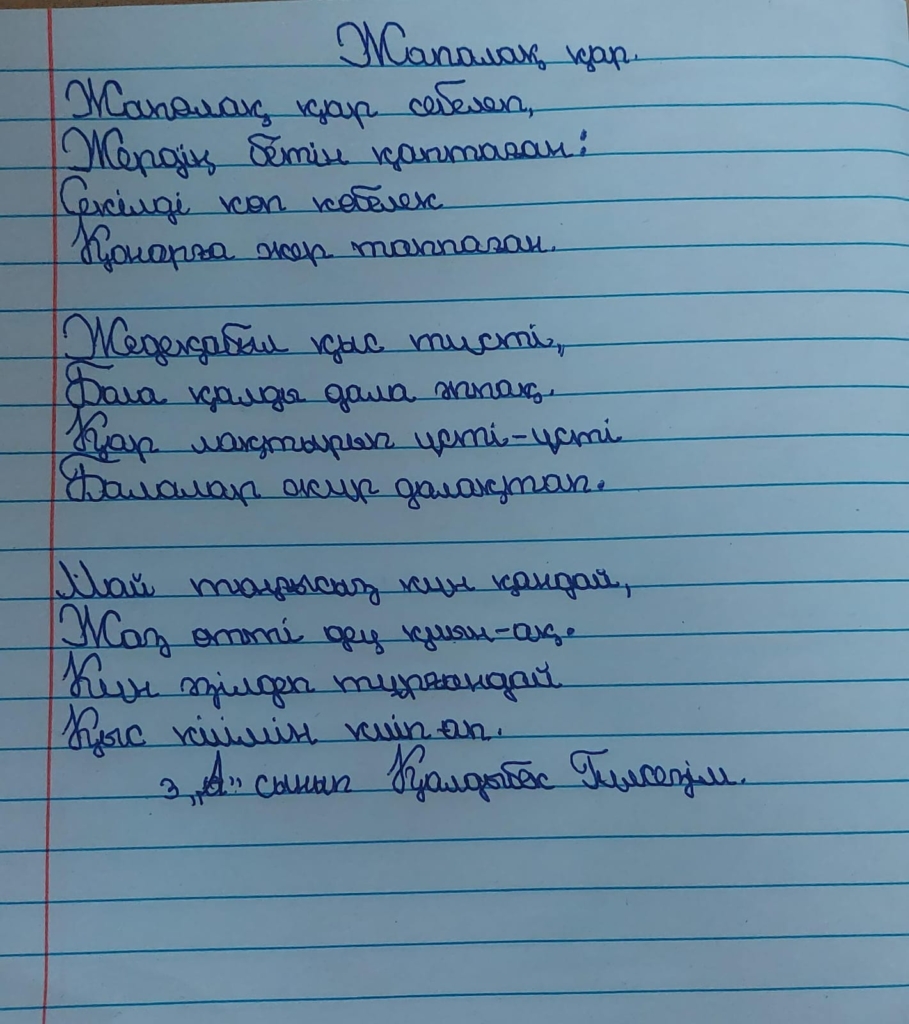 Жапалақ қар.
Жапалақ қар себелеп,
Жердің бетін қаптаған:
Секілді көп көбелек
Қонарға жер таппаған.
Жедеқабыл қыс түсті,
Баға қалды дала аппақ.
Қар лақтырып үсті-үсті
Балалар жүр далақтап.
Май тоңғысыз күн қандай,
Жаз өтті деу қиын-ақ.
Күн әзілдеп тұрғандай
Қыс киімін киіп ап.
3 „А" сынып Қалдыбек